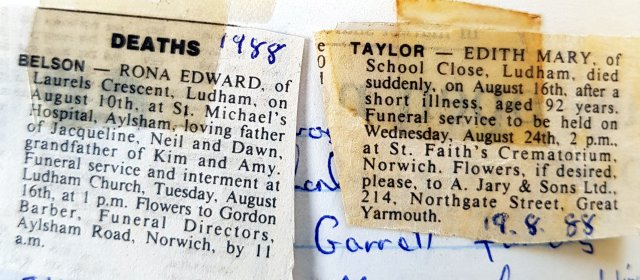 DEATHS 1988
BELSON — RONA EDWARD, of
Laurels Crescent, Ludham, on
August 10th, at St. Michael's
Hospital, Aylsham, loving father
of Jacqueline, Neil and Dawn,
grandfather of Kim and Amy.
Funeral service and interment at
Ludham Church, Tuesday, August
16th, at 1 p.m. Flowers to Gordon
Barber, Funeral Directors,
Aylsham Road, Norwich, by 11
a.m.
TAYLOR — EDITH MARY, of
School Close, Ludham, died
suddenly, on August 16th, after a
short illness, aged 92 years.
Funeral service to be held on
Wednesday, August 24th, 2 p.m.,
at St. Faith's Crematorium,
Norwich. Flowers, if desired,
please, to A. Jary & Sons Ltd.,
214, Northgate Street, Great
Yarmouth.
19.8.88
Garrell